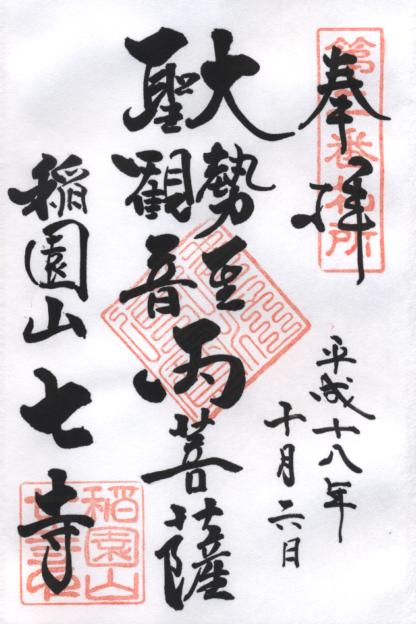 奉拝
平成十八年
十月六日
大勢至
聖観音
両菩薩
稲園山七寺
稲園山
七寺